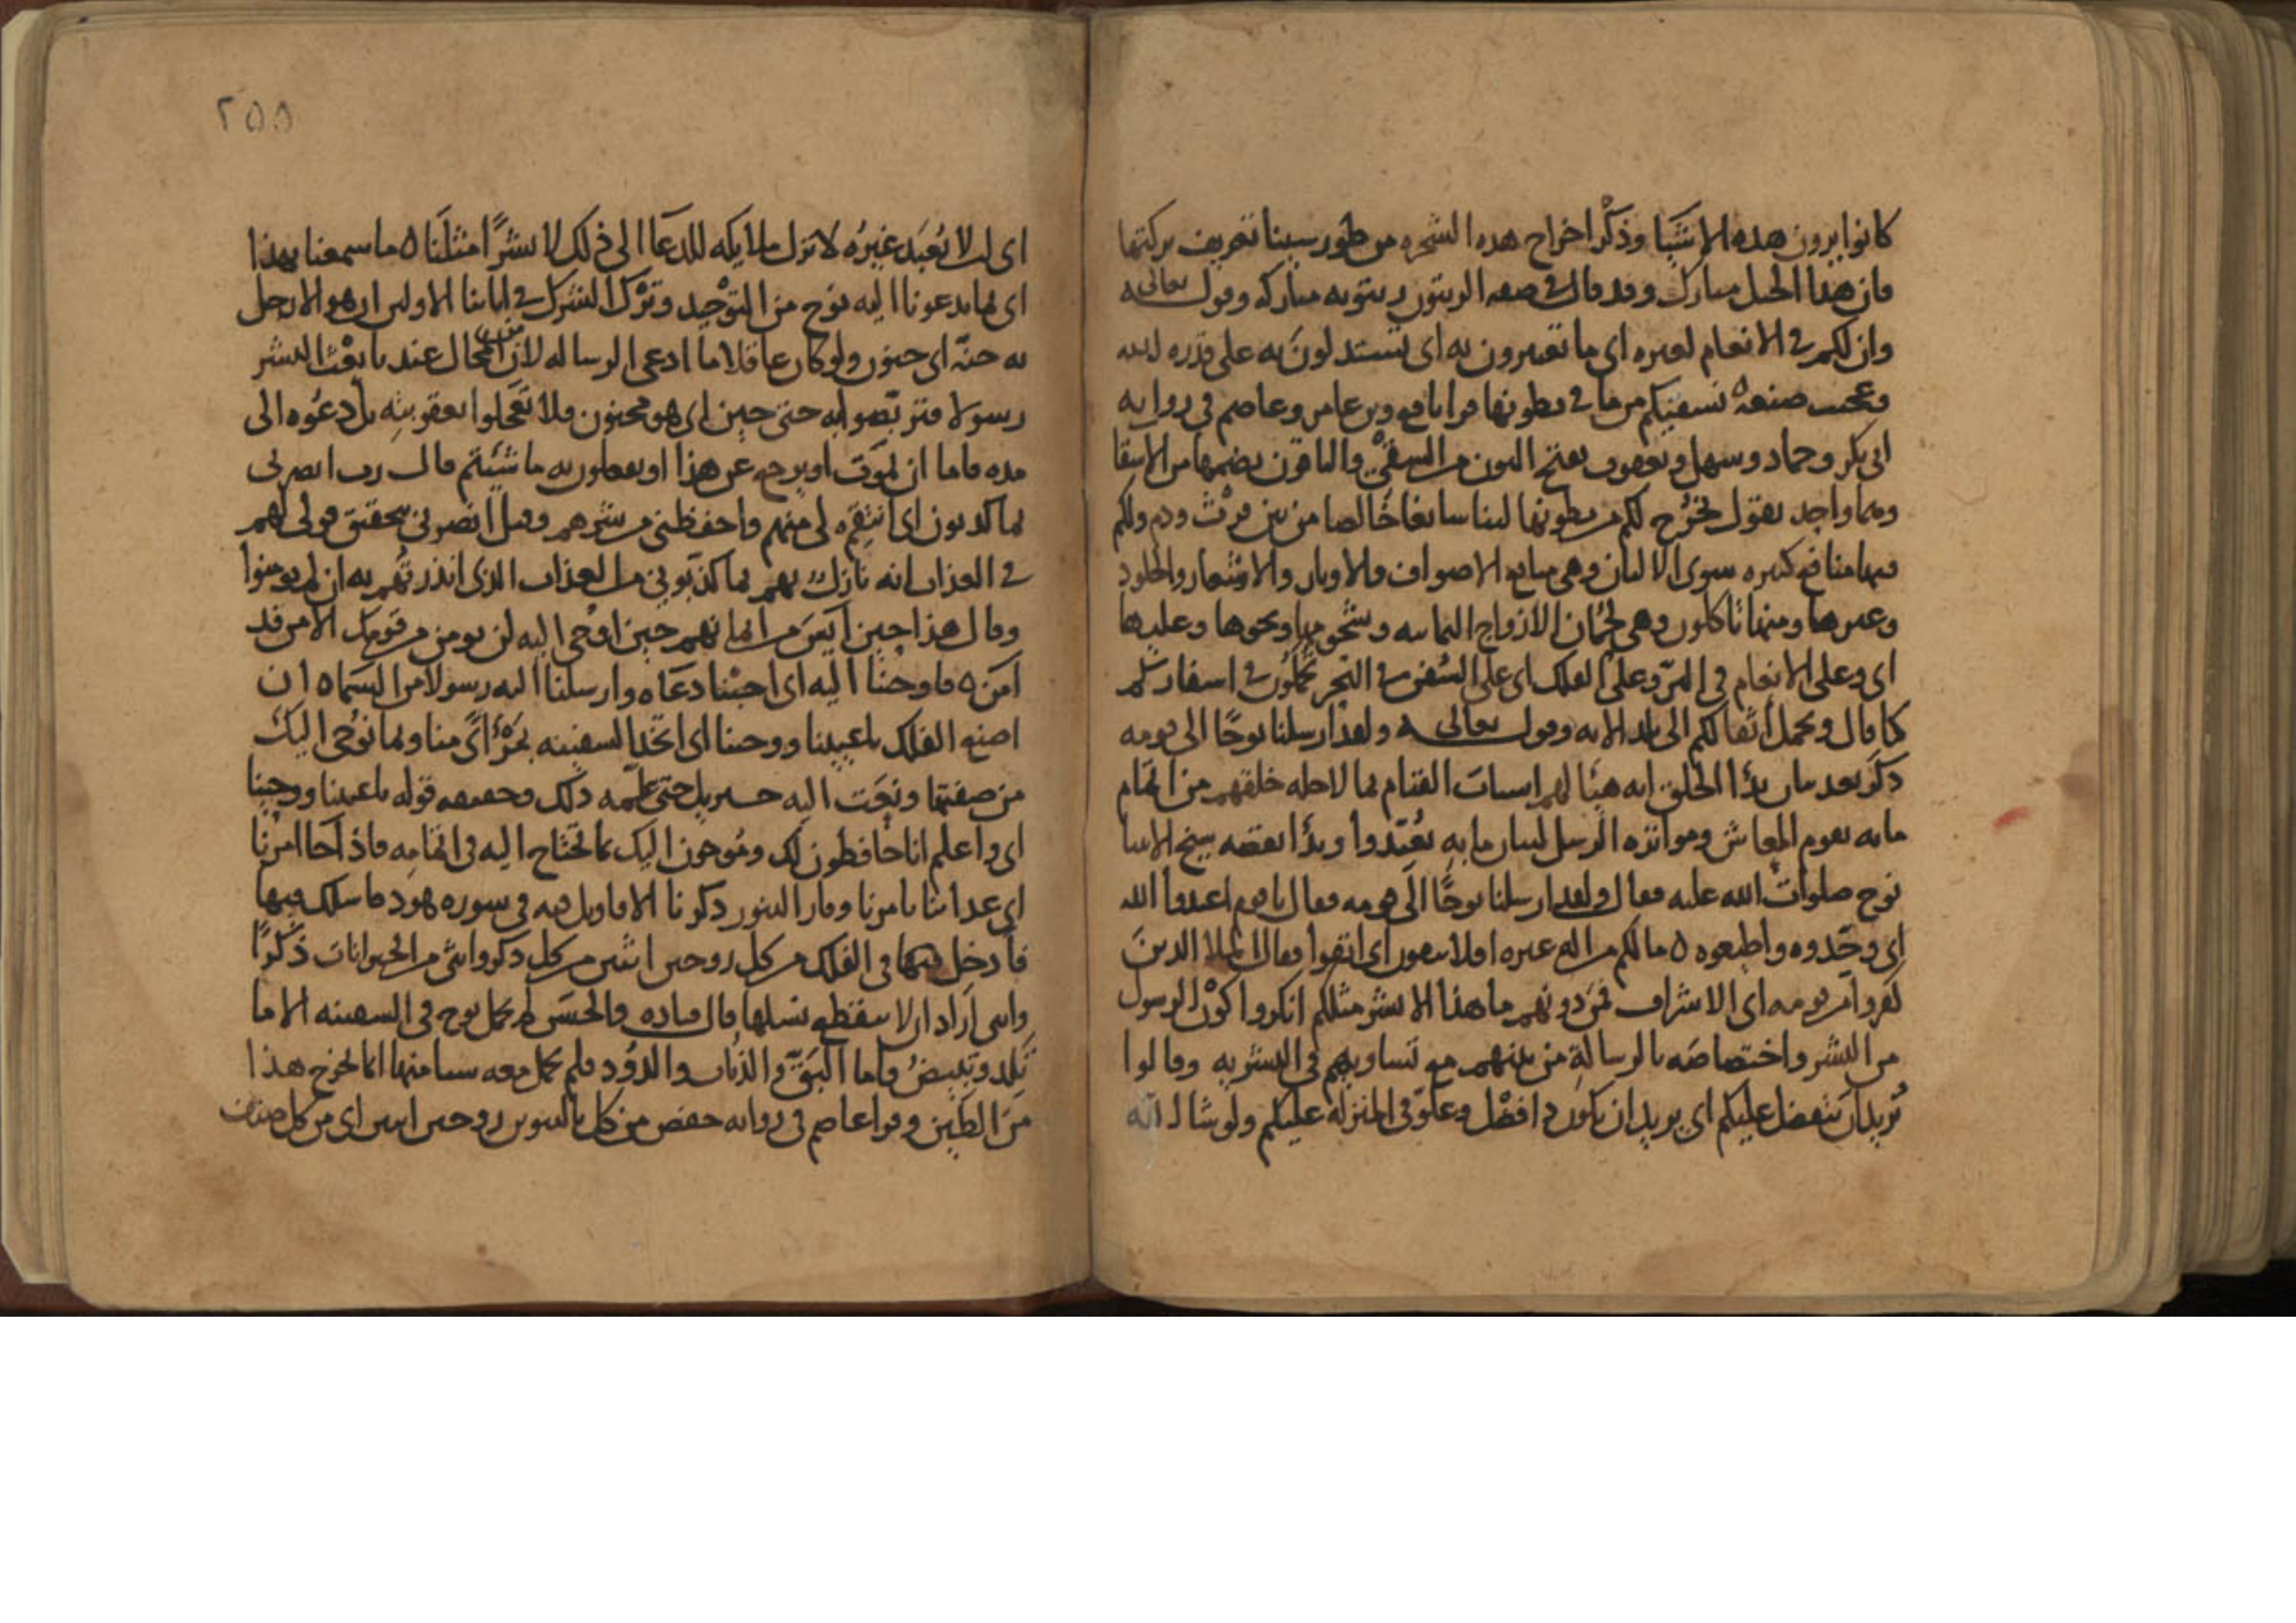 كانوا يرون هذه الاشيا وذكر اخراج هذه الشجره من طور سينا تعريف بركتها
فان هذا الجبل مبارك وقد قال في صفه الزيتون زيتونه مباركه وقوله تعالى
وان لكم في الانعام لعبره اي ما تعتبرون به اي تستدلون به على قدره الله
وعجيب صنعه نسقيكم مما في بطونها قرا نافع وبن عامر وعاصم في روايه
ابي بكر وحماد وسهل ويعقوب بفتح النون من السقي والباقون بضمها من الاسقا
وهما واحد يقول نخرج لكم من بطونها لبنا سايغا خالصا من بين فرث ودم ولكم
فيها منافع كثيره سوى الالبان وهي منافع الاصواف والاوبار والاشعار والجلود
وغيرها ومنها تاكلون وهي لحمان الازواج الثمانيه وشحومها ونحوها وعليها
اي وعلى الانعام في البر وعلى الفلك اي على السفن في البحر تحملون في اسفاركم
كما قال وتحمل اثقالكم الى بلد الايه وقوله تعالى ولقد ارسلنا نوحا الى قومه
ذكر بعد بيان بدا الخلق انه هيا لهم اسباب القيام بما لاجله خلقهم من اتمام
ما به يقوم المعاش ومواتره الرسل لبيان ما به تعبدوا وبدا بقصه شيخ الانبيا
نوح صلوات الله عليه فقال ولقد ارسلنا نوحا الى قومه فقال يا قوم اعبدوا الله
اي وحدوه واطيعوه ه ما لكم من اله غيره افلا تتقون اي اتقوا فقال الملا الذين
كفروا من قومه اي الاشراف فمن دونهم ما هذا الا بشر مثلكم انكروا كون الرسول
من البشر واختصاصه بالرسالة من بينهم مع تساويهم في البشريه وقالوا
يريد ان يتفضل عليكم اي يريد ان يكون ذا فضل وعلو في المنزلة عليكم ولو شا الله
٢٥٥
اي ان لا نعبد غيره لانزل ملايكه للدعا الى ذلك لا بشرا مثلنا ه ما سمعنا بهذا
اي بما يدعونا اليه نوح من التوحيد وترك الشرك في ابائنا الاولين ان هو الا رجل
به جنة اي جنون ولو كان عاقلا ما ادعى الرساله لان من المحال عندنا بعث البشر
رسولا فتربصوا به حتى حين اي هو مجنون فلا تعجلوا بعقوبته بل دعوه الى
مده فاما ان يموت او يرجع عن هذا او تفعلون به ما شئتم قال رب انصرني
بما كذبون اي انتقم لي منهم واحفظني من شرهم وقيل انصرني بتحقيق قولي لهم
في العذاب انه نازل بهم بما كذبوني من العذاب الذي انذرتهم به ان لم يومنوا
وقال هذا حين ايس من ايمانهم حين اوحي اليه لن يومن من قومك الا من قد
امن ه فاوحينا اليه اي اجبنا دعاه وارسلنا اليه رسولا من السماه ان
اصنع الفلك باعيننا ووحينا اي اتخذ السفينه بمرأى منا وبما نوحي اليك
من صفتها وبعث اليه جبريل حتى علمه ذلك وحقيقه قوله باعيننا ووحينا
اي واعلم انا حافظون لك وموحون اليك بما تحتاج اليه في اتمامه فاذا جا امرنا
اي عذابنا بامرنا وفار التنور ذكرنا الاقاويل فيه في سوره هود فاسلك فيها
فادخل فيها في الفلك من كل زوجين اثنين من كل ذكر وانثى من الحيوانات ذكرا
وانثى اراد ان لا ينقطع نسلها قال قتاده والحسن لم يحمل نوح في السفينه الا ما
تلد وتبيض واما البق والذباب والدود فلم يحمل معه شيا منها انما يخرج هذا
من الطين وقرا عاصم في روايه حفص من كل بالتنوين زوجين اثنين اي من كل صنف